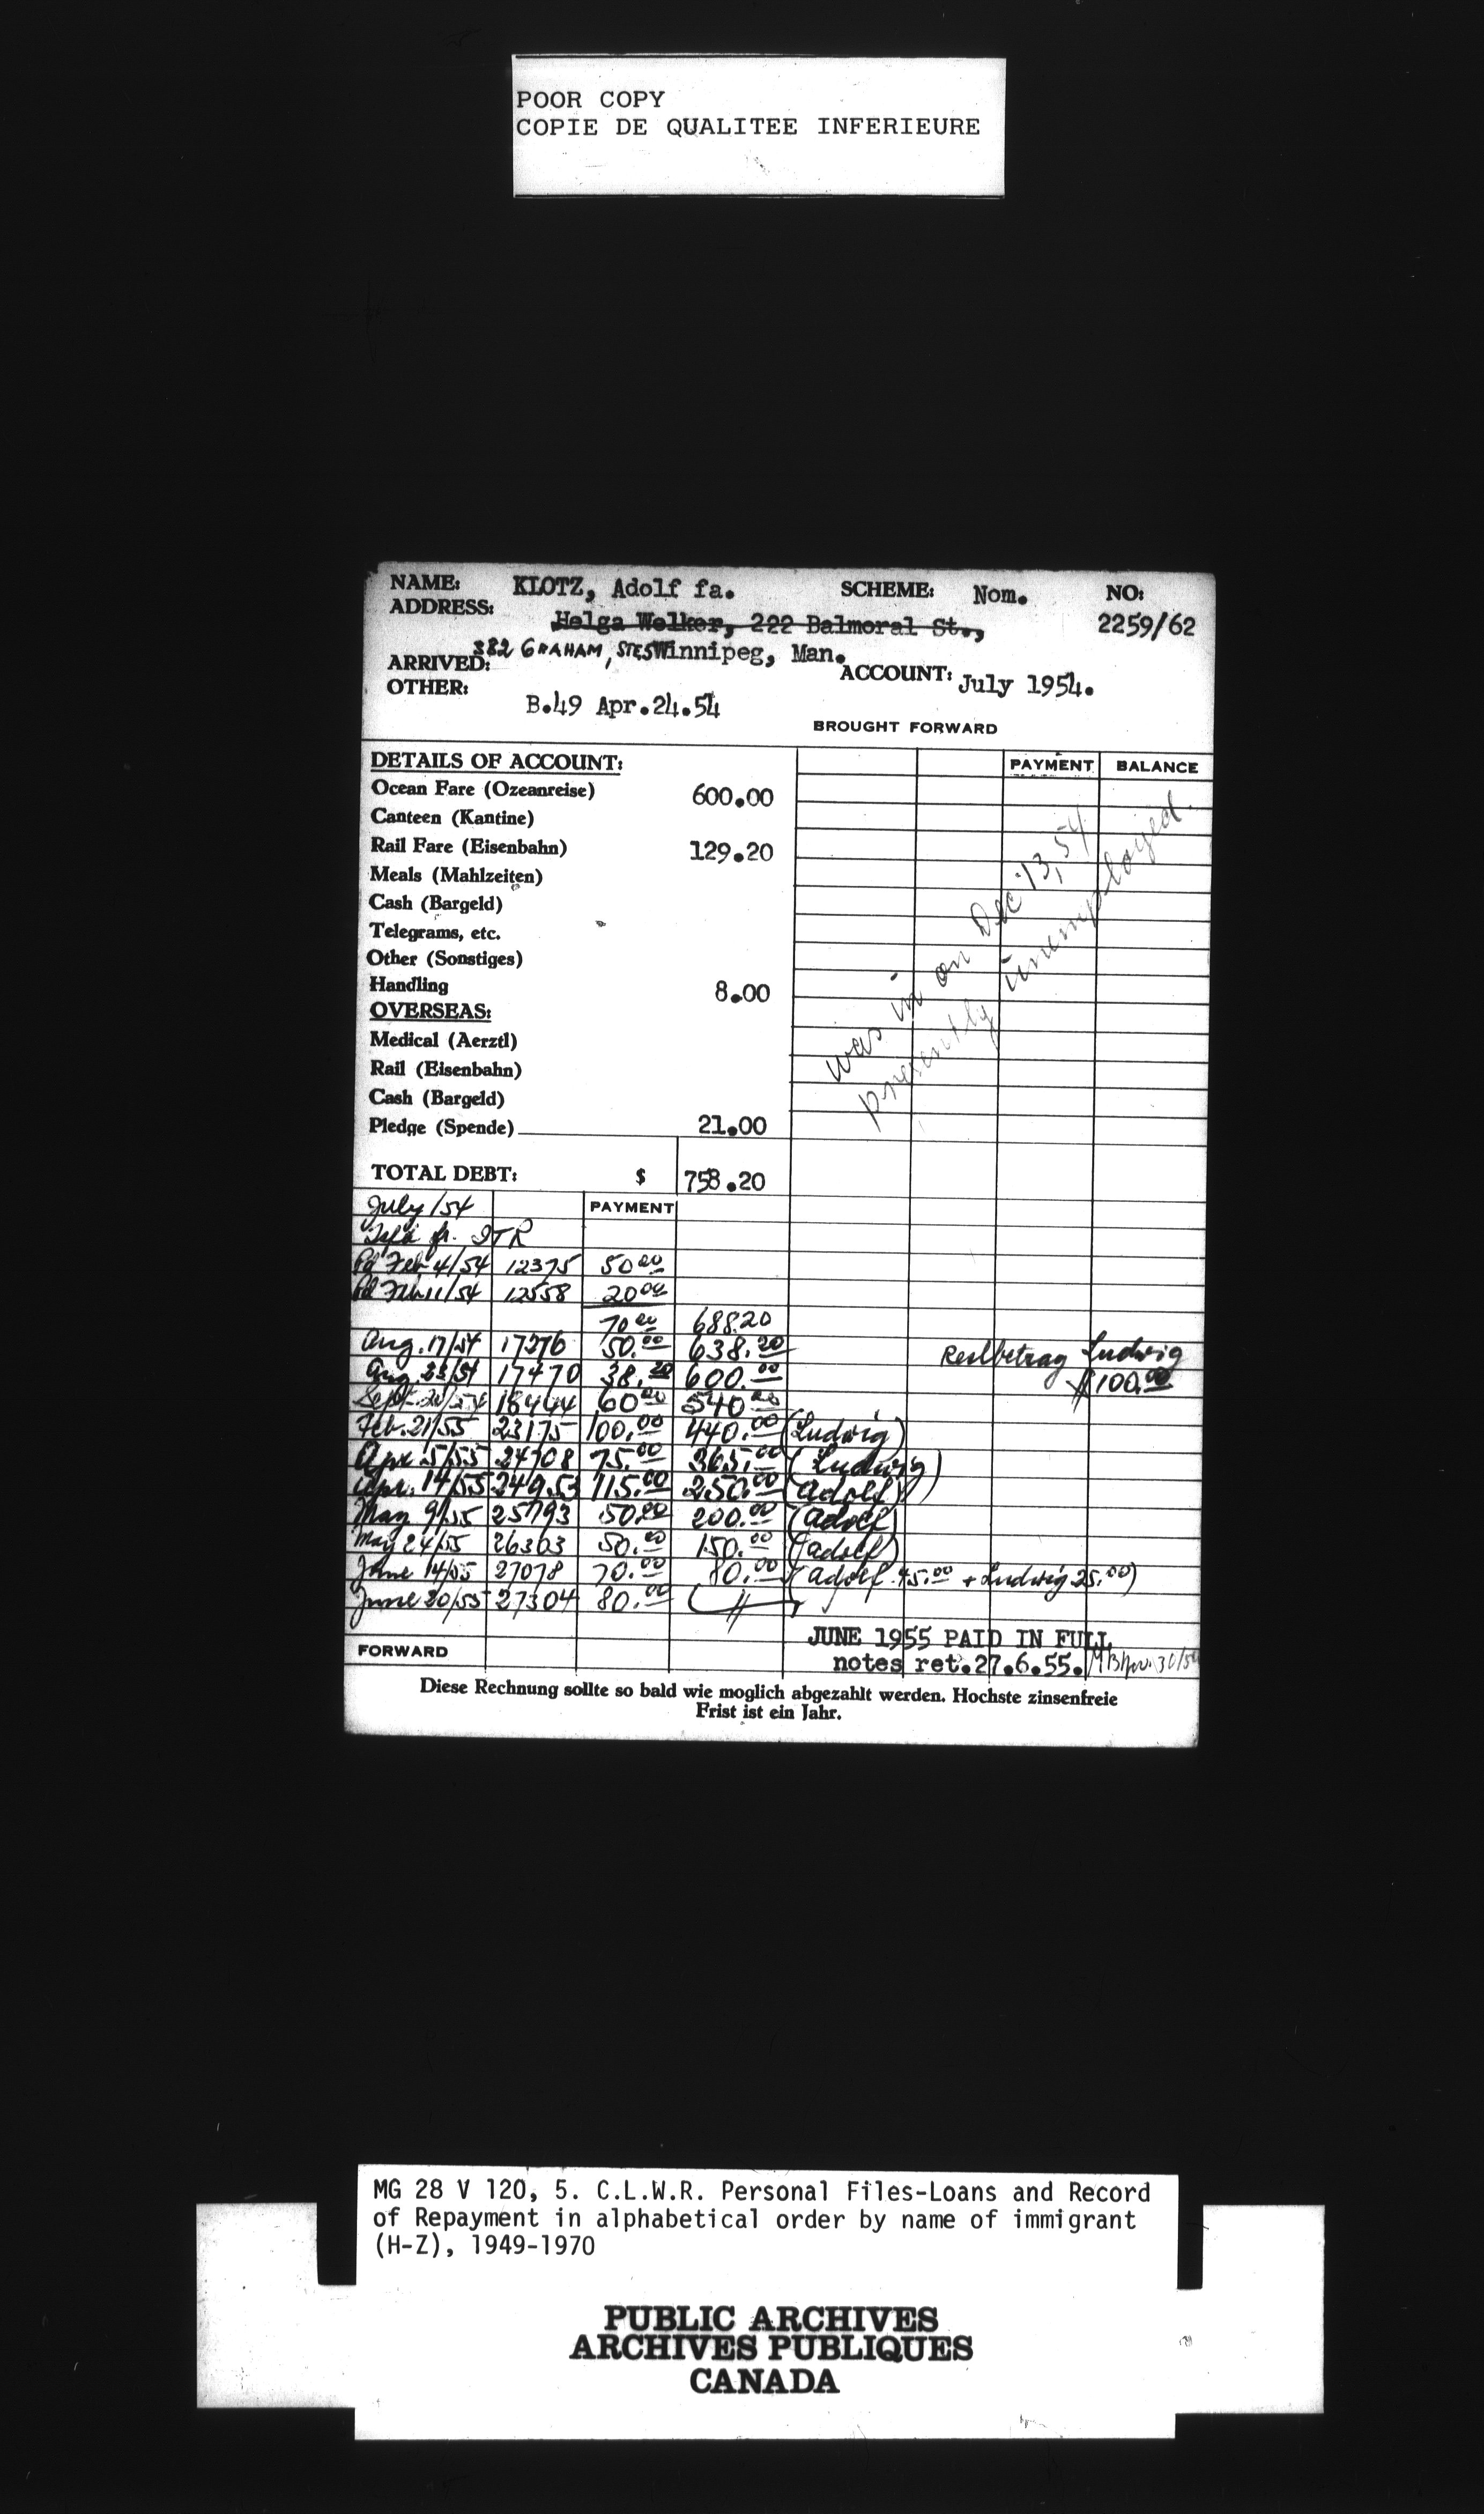 POOR COPY
COPIE DE QUALITEE INFERIEURE
NAME: KLOTZ, Adolf fa. SCHEME: Nom. NO:
ADDRESS: Helga Welker, 222 Balmoral St., 2259/62
382 GRAHAM, STE5 Winnipeg, Man.
ARRIVED: ACCOUNT: July 1954.
OTHER: B.49 Apr.24.54
BROUGHT FORWARD
DETAILS OF ACCOUNT: PAYMENT BALANCE
Ocean Fare (Ozeanreise) 600.00
Canteen (Kantine)
Rail Fare (Eisenbahn) 129.20
Meals (Mahlzeiten)
Cash (Bargeld)
Telegrams, etc.
Other (Sonstiges)
Handling 8.00
OVERSEAS:
Medical (Aerztl)
Rail (Eisenbahn)
Cash (Bargeld)
Pledge (Spende) 21.00
was in on Dec 13, 54
presently unemployed.
TOTAL DEBT: $ 758.20
July/54 PAYMENT
fr. ITR
Pd Feb 4/54 12375 50 00
Pd Feb 11/54 12558 20 00
70 00 688.20
Aug. 17/54 17276 50.00 638.20 Restbetrag Ludwig
Aug. 23/54 17470 38.20 600.00 $100.00
Sept. 18444 60 00 540 00
Feb. 21/55 23175 100.00 440.00 (Ludwig)
Apr. 5/55 24708 75.00 365.00 (Ludwig)
Apr. 14/55 24953 115.00 250.00 (Adolf)
May 9/55 25793 50.00 200.00 (Adolf)
May 24/55 26363 50.00 150.00 (Adolf)
June 14/55 27078 70.00 80.00 (Adolf 45.00 + Ludwig 25.00)
June 20/55 27304 80.00
JUNE 1955 PAID IN FULL
FORWARD notes ret.27.6.55.
Diese Rechnung sollte so bald wie moglich abgezahlt werden. Hochste zinsenfreie
Frist ist ein Jahr.
MG 28 V 120, 5. C.L.W.R. Personal Files-Loans and Record
of Repayment in alphabetical order by name of immigrant
(H-Z), 1949-1970
PUBLIC ARCHIVES
ARCHIVES PUBLIQUES
CANADA